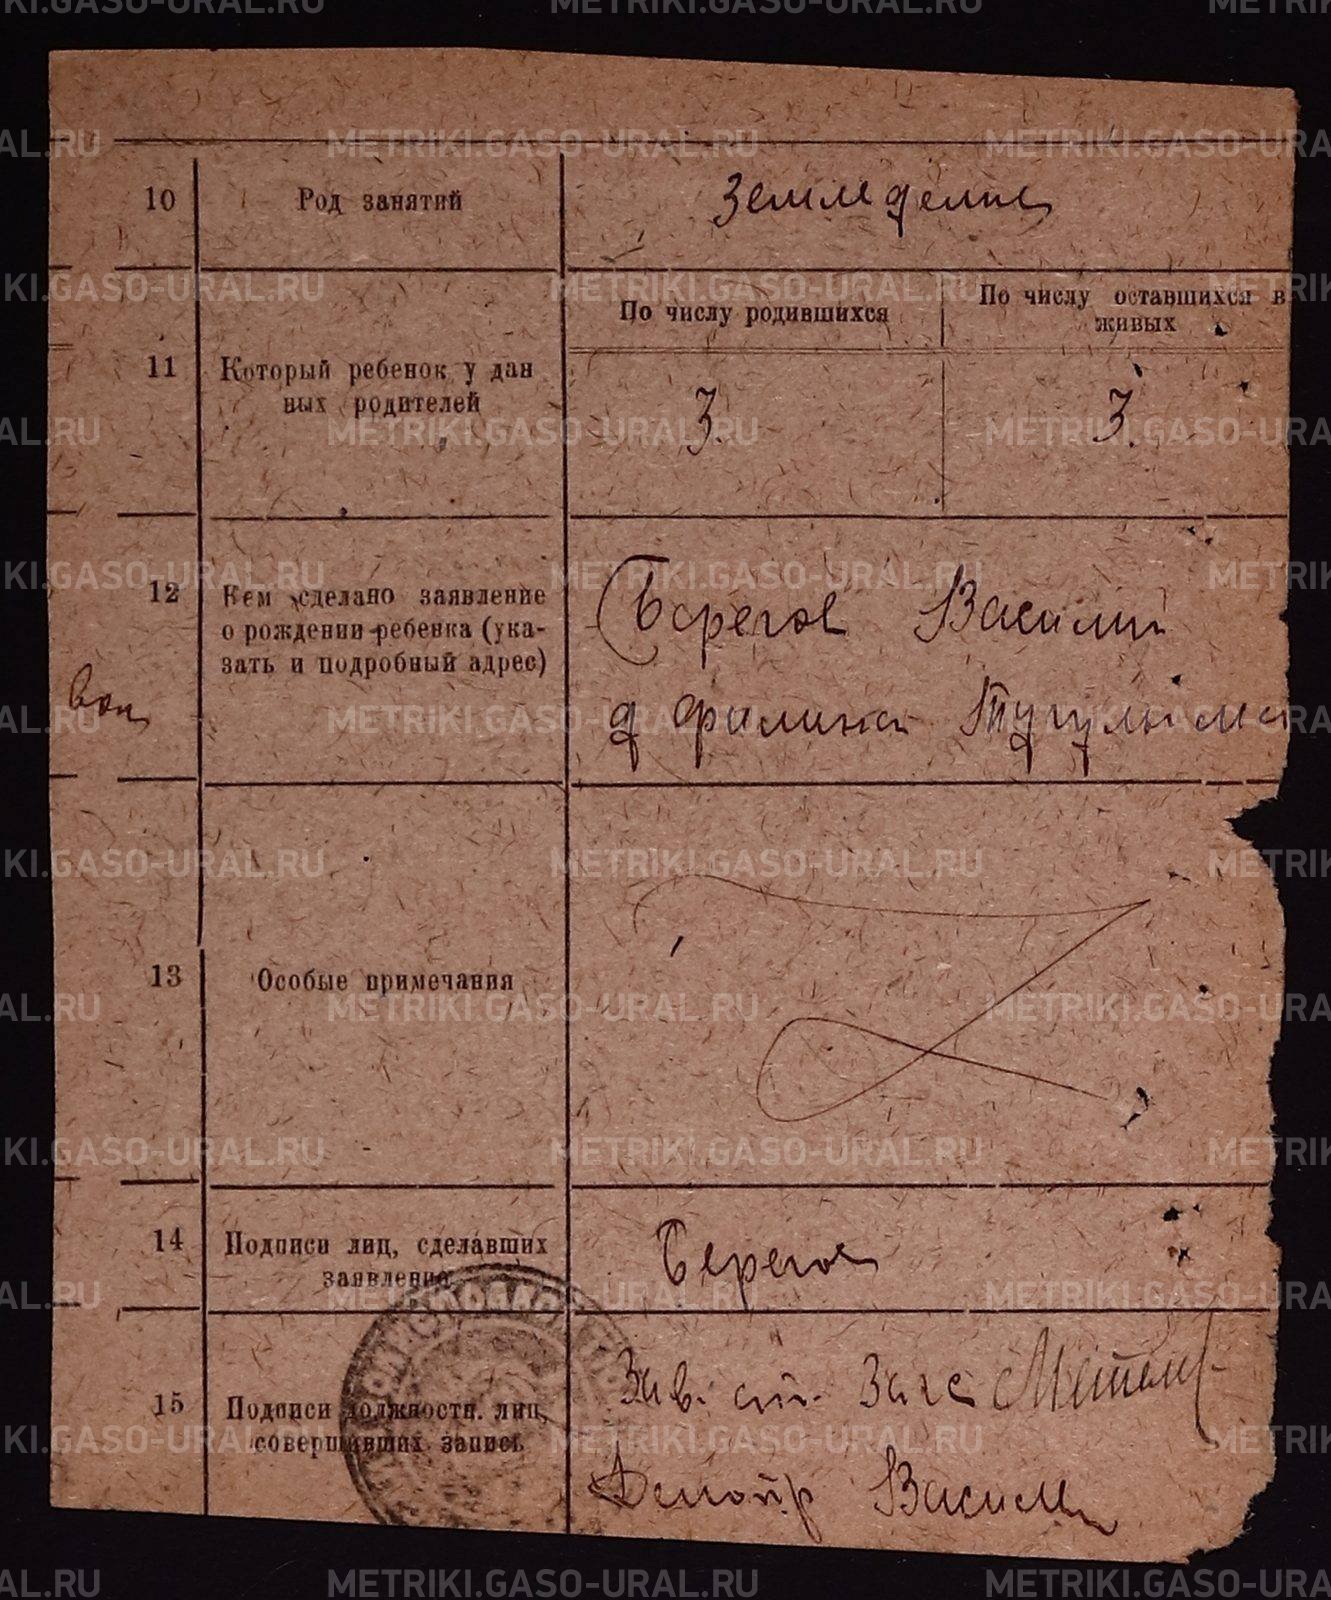 10 Род занятий Земледелие
11 Который ребенок у дан
ных родителей
По числу родившихся
По числу оставшихся в
живых
3. 3.
12 Кем сделано заявление
о рождении ребенка (ука-
зать и подробный адрес)
Берегов Василий
д Фалина Тугулым
13 Особые примечания
14 Подписи лиц, сделавших
заявление
Берегов
15 Подписи должностн. лиц,
совершивших запись
Зав. ст. Загс
Делопр Василь
METRIKI.GASO-URAL.RU